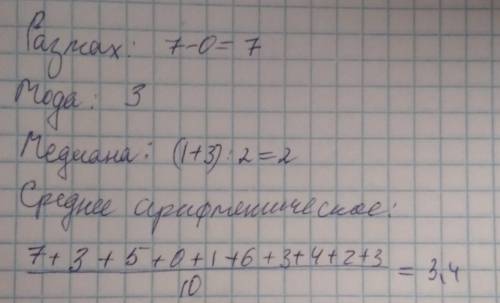 Размах: 7-0=7
Мода: 3
Медиана: (1+3):2=2
Среднее арифметическое:
7+3+5+0+1+6+3+4+2+3
10
= 3,4